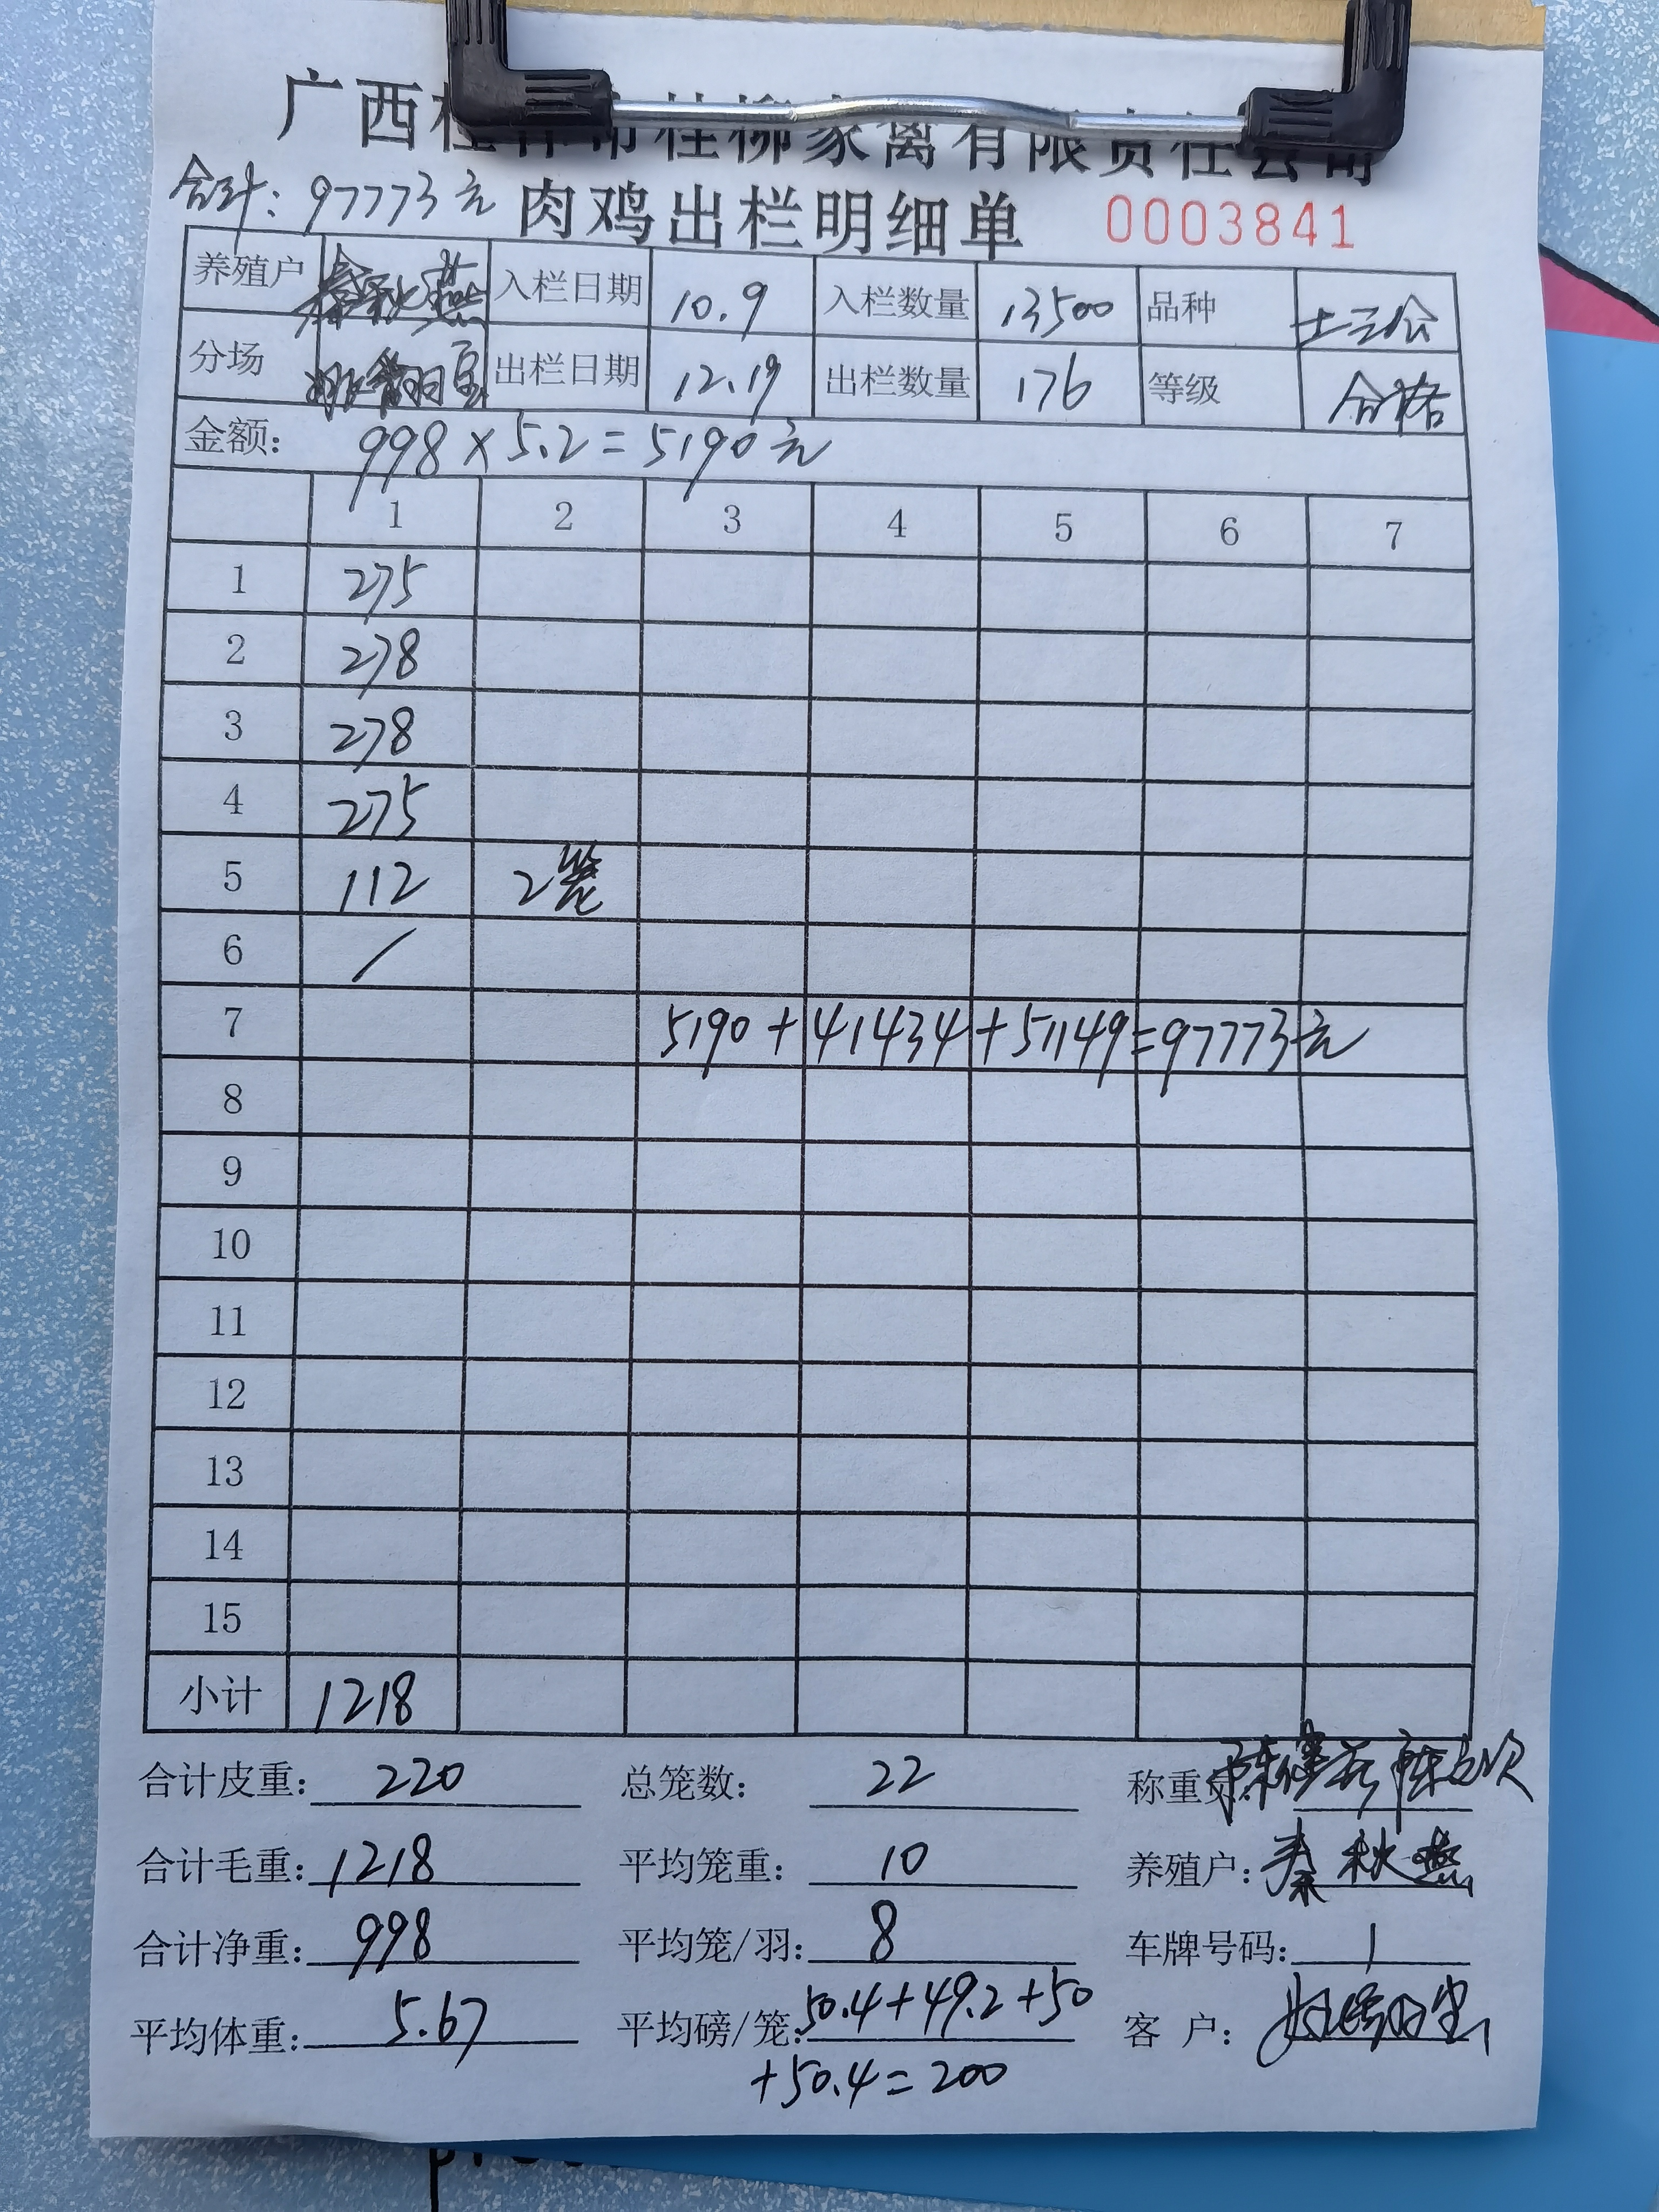 广西桂林市桂柳家禽有限责任公司
合计: 97773元
肉鸡出栏明细单 0003841
养殖户 秦秋燕 入栏日期 10.9 入栏数量 13500 品种 土三公
分场 出栏日期 12.19 出栏数量 176 等级 合格
金额: 998×5.2=5190元
1 2 3 4 5 6 7
1 275
2 278
3 278
4 275
5 112 2笼
6 /
7 5190+41434+51149=97773元
8
9
10
11
12
13
14
15
小计 1218
合计皮重: 220 总笼数: 22 称重员:
合计毛重: 1218 平均笼重: 10 养殖户: 秦秋燕
合计净重: 998 平均笼/羽: 8 车牌号码: 1
平均体重: 5.67 平均磅/笼: 50.4+49.2+50 客 户:
+50.4=200